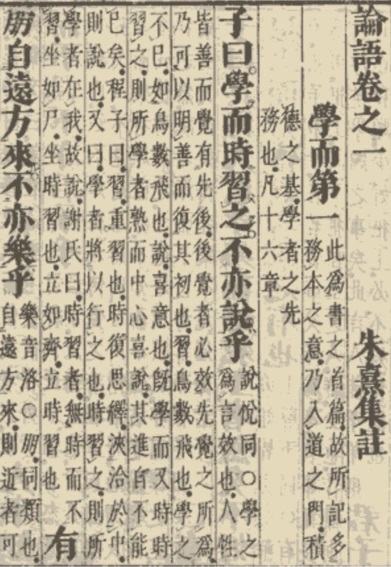 論語卷之一 朱熹集註
學而第一
此爲書之首篇故所記多
務本之意乃入道之門積
德之基學者之先
務也凡十六章
子曰學而時習之不亦說乎
說悅同○學之
爲言效也人性
皆善而覺有先後後覺者必效先覺之所爲
乃可以明善而復其初也習鳥數飛也學之
不已如鳥數飛也說喜意也旣學而又時時
習之則所學者熟而中心喜說其進自不能
已矣程子曰習重習也時復思繹浹洽於中
則說也又曰學者將以行之也時習之則所
學者在我故說謝氏曰時習者無時而不
習坐如尸坐時習也立如齊立時習也
有
朋自遠方來不亦樂乎
樂音洛○朋同類也
自遠方來則近者可